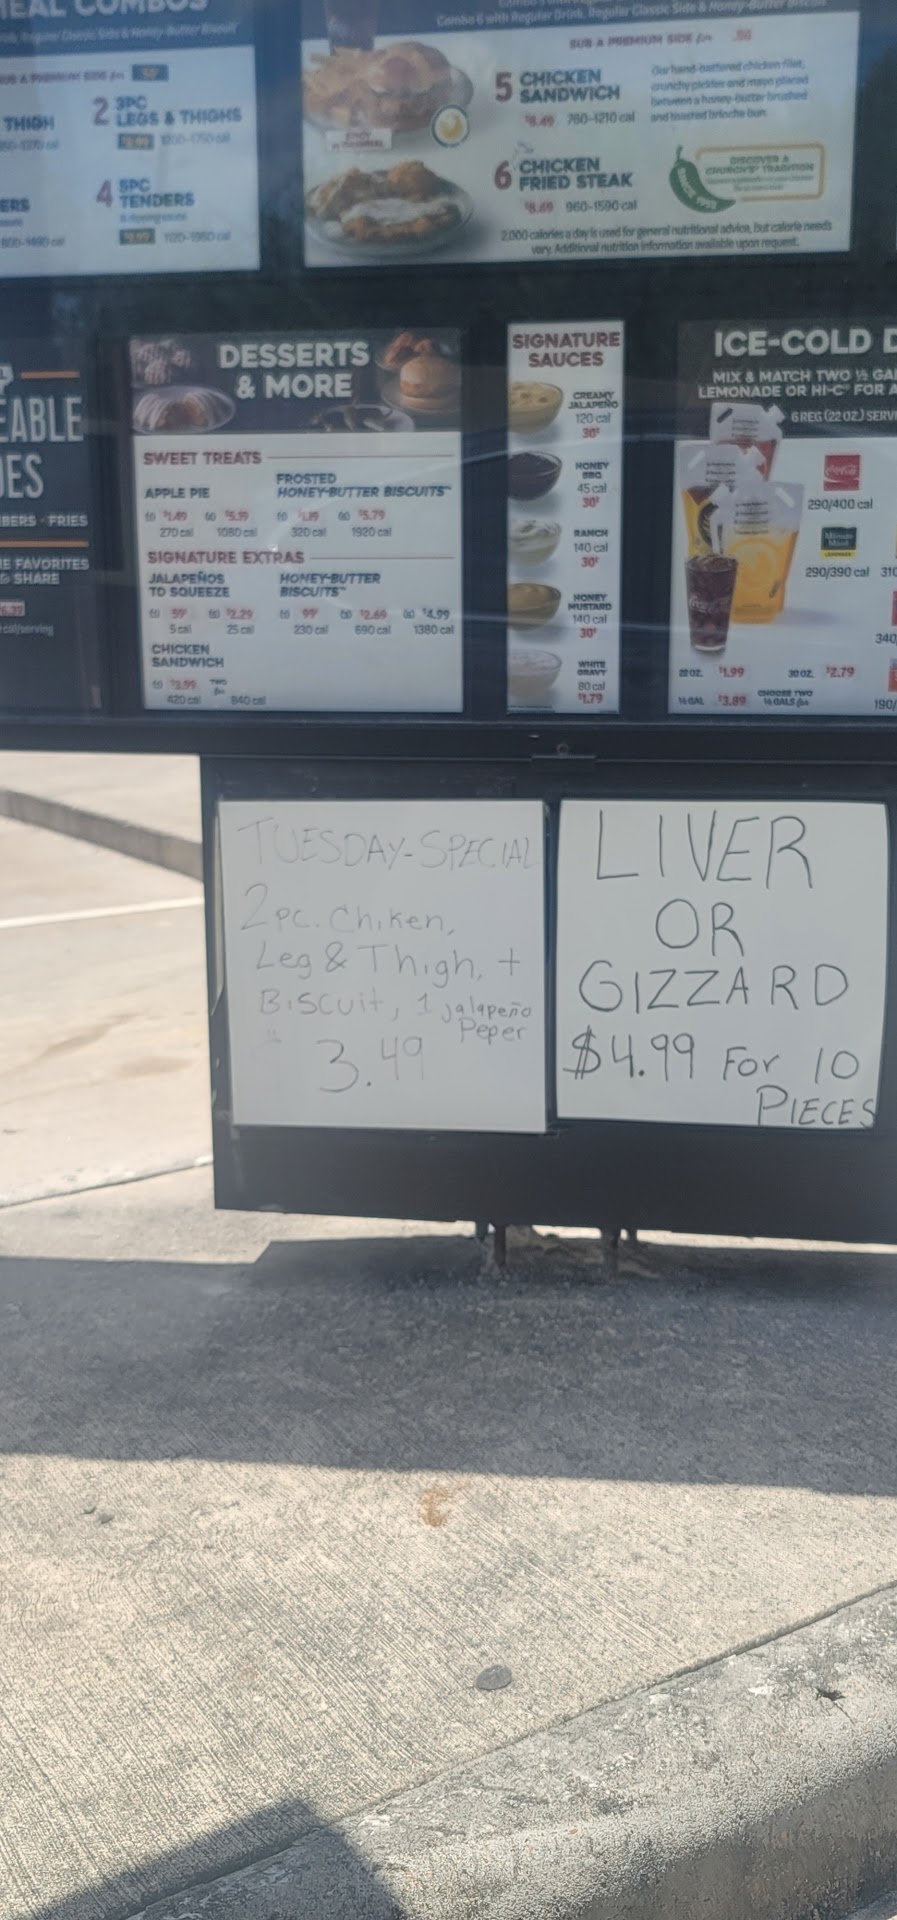 MEAL COMBOS
THIGH
2 3PC
LEGS & THIGHS
4 5PC
TENDERS
Combo 6 with Regular Drink, Regular Classic Side & Honey-Butter Biscuit
SUB A PREMIUM SIDE for
5 CHICKEN
SANDWICH
$8.49 760-1210 cal
Our hand-battered chicken filet,
crunchy pickles and mayo placed
between a honey-butter brushed
and toasted brioche bun.
6 CHICKEN
FRIED STEAK
$8.69 960-1590 cal
DISCOVER A
CHURCH'S TRADITION
2,000 calories a day is used for general nutritional advice, but calorie needs
vary. Additional nutrition information available upon request.
FRIES
FAVORITES
SHARE
cal/serving
DESSERTS
& MORE
SWEET TREATS
APPLE PIE
$1.49 $5.19
270 cal 1080 cal
FROSTED
HONEY-BUTTER BISCUITS™
$1.19 $5.79
320 cal 1920 cal
SIGNATURE EXTRAS
JALAPEÑOS
TO SQUEEZE
59¢ $2.29
5 cal 25 cal
HONEY-BUTTER
BISCUITS™
99¢ $2.69 $4.99
230 cal 690 cal 1380 cal
CHICKEN
SANDWICH
$3.99 TWO for
420 cal 840 cal
SIGNATURE
SAUCES
CREAMY
JALAPEÑO
120 cal
30¢
HONEY
BBQ
45 cal
30¢
RANCH
140 cal
30¢
HONEY
MUSTARD
140 cal
30¢
WHITE
GRAVY
80 cal
$1.79
ICE-COLD
MIX & MATCH TWO ½
LEMONADE OR HI-C® FOR A
6 REG (22 OZ.)
Coca-Cola
290/400 cal
Minute
Maid
290/390 cal
22 OZ. $1.99 30 OZ. $2.79
½ GAL $3.89 CHOOSE TWO
½ GALS for
TUESDAY-SPECIAL
2 pc. Chiken,
Leg & Thigh, +
Biscuit, 1 jalapeño
Peper
3.49
LIVER
OR
GIZZARD
$4.99 For 10
PIECES